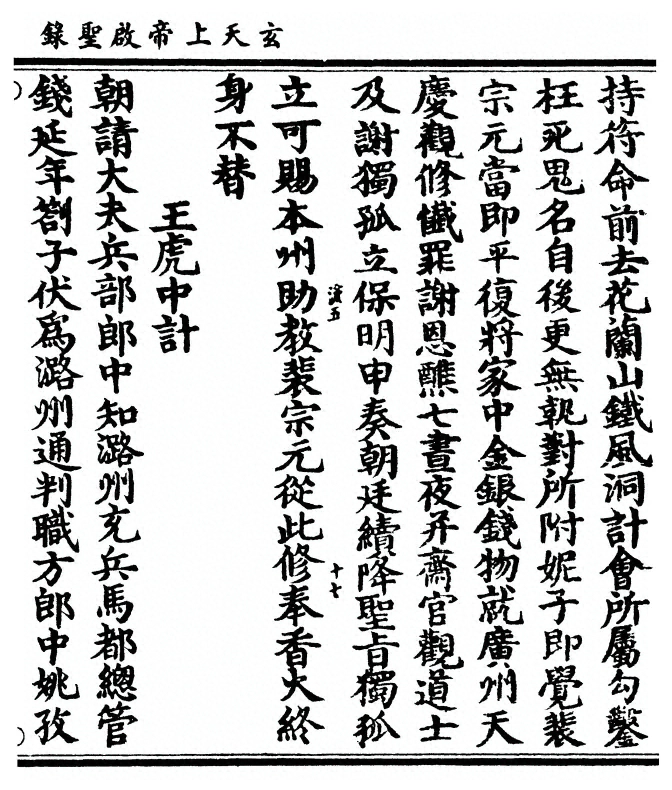 玄天上帝啟聖錄
持符命前去花蘭山鐵風洞計會所屬勾鑿
枉死鬼名自後更無執對所附妮子即覺裴
宗元當即平復將家中金銀錢物就廣州天
慶觀修懺罪謝恩醮七晝夜并齋官觀道士
及謝獨孤立保明申奏朝廷續降聖旨獨孤
渡五
十七
立可賜本州助教裴宗元從此修奉香火終
身不替
王虎中計
朝請大夫兵部郎中知潞州充兵馬都總管
錢延年劄子伏為潞州通判職方郎中姚孜